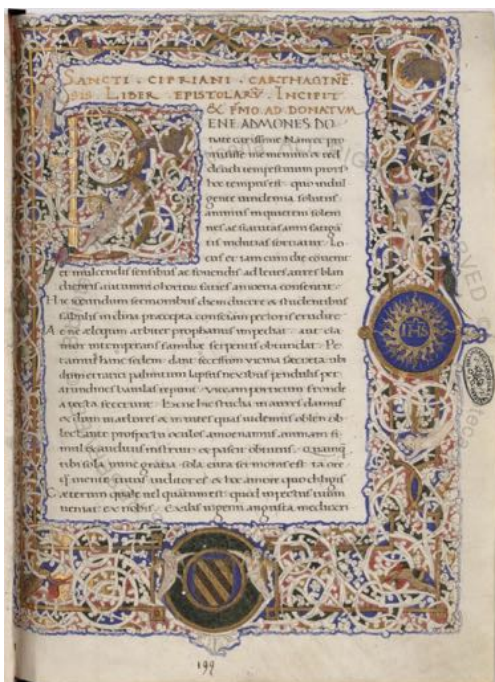 SANCTI . CIPRIANI . CARTHAGINĒ
SIS . LIBER EPISTOLARV̄ . INCIPIT
ET PMO . AD . DONATVM
ENE ADMONES DO
nate carissime Nam et pro
misisse me memini et red
dendi tempestiuum prorsus
hoc tempus est quo indul
gente uindemia solutus
animus in quietem solem
nes ac statutas anni fatigā
tis indutias sortiatur Lo
cus et iam cum die conuenit
et mulcendis sensibus ac fouendis ad leues auras blan
dientis autumni hortorum facies amoena consentit
Hic iocundum sermonibus diem ducere et studentibus
fabulis in diuina praecepta conscientiam pectoris erudire
Ac ne eloquium arbiter prophanus impediat aut cla
mor intemperans familiae strepentis obtundat Pe
tamus hanc sedem dant secessum uicina secreta ubi
dum erratici palmitum lapsus nexibus pendulis per
arundines baiulas repunt uiteam porticum frondea
tecta fecerunt Bene hic studia in aures damus
et dum in arbores et in uites quas uidemus oblec
tante prospectu oculos amoenamus animam si
mul et auditus instruit et pascit obtutus quamq̄
tibi sola nunc gratia sola cura sermonis est
mente
Caeterum quale uel quantum est quod in pectus tuum
ueniat ex nobis Exilis ingenii angusta mediocri
IHS
199